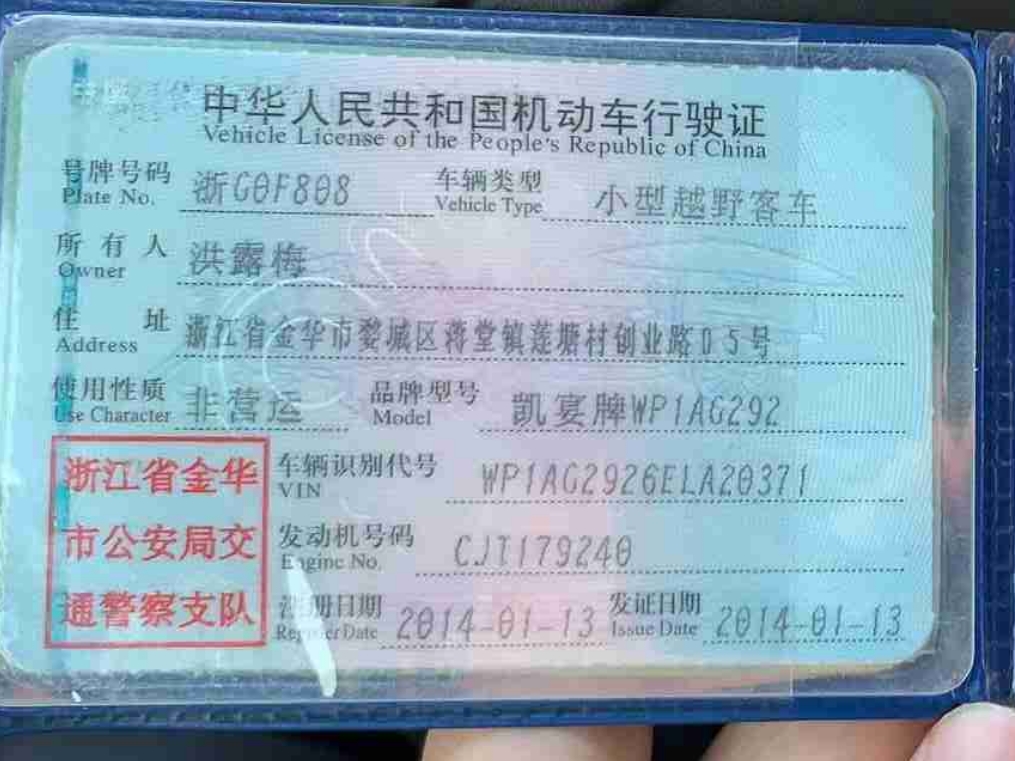 中华人民共和国机动车行驶证
Vehicle License of the People's Republic of China
号牌号码 浙G0F808 车辆类型 小型越野客车
Plate No. Vehicle Type
所有人 洪露梅
Owner
住址 浙江省金华市婺城区蒋堂镇莲塘村创业路05号
Address
使用性质 非营运 品牌型号 凯宴牌WP1AG292
Use Character Model
浙江省金华 车辆识别代号 WP1AG2926ELA20371
VIN
市公安局交 发动机号码 CJT179240
Engine No.
通警察支队 注册日期 2014-01-13 发证日期 2014-01-13
Register Date Issue Date